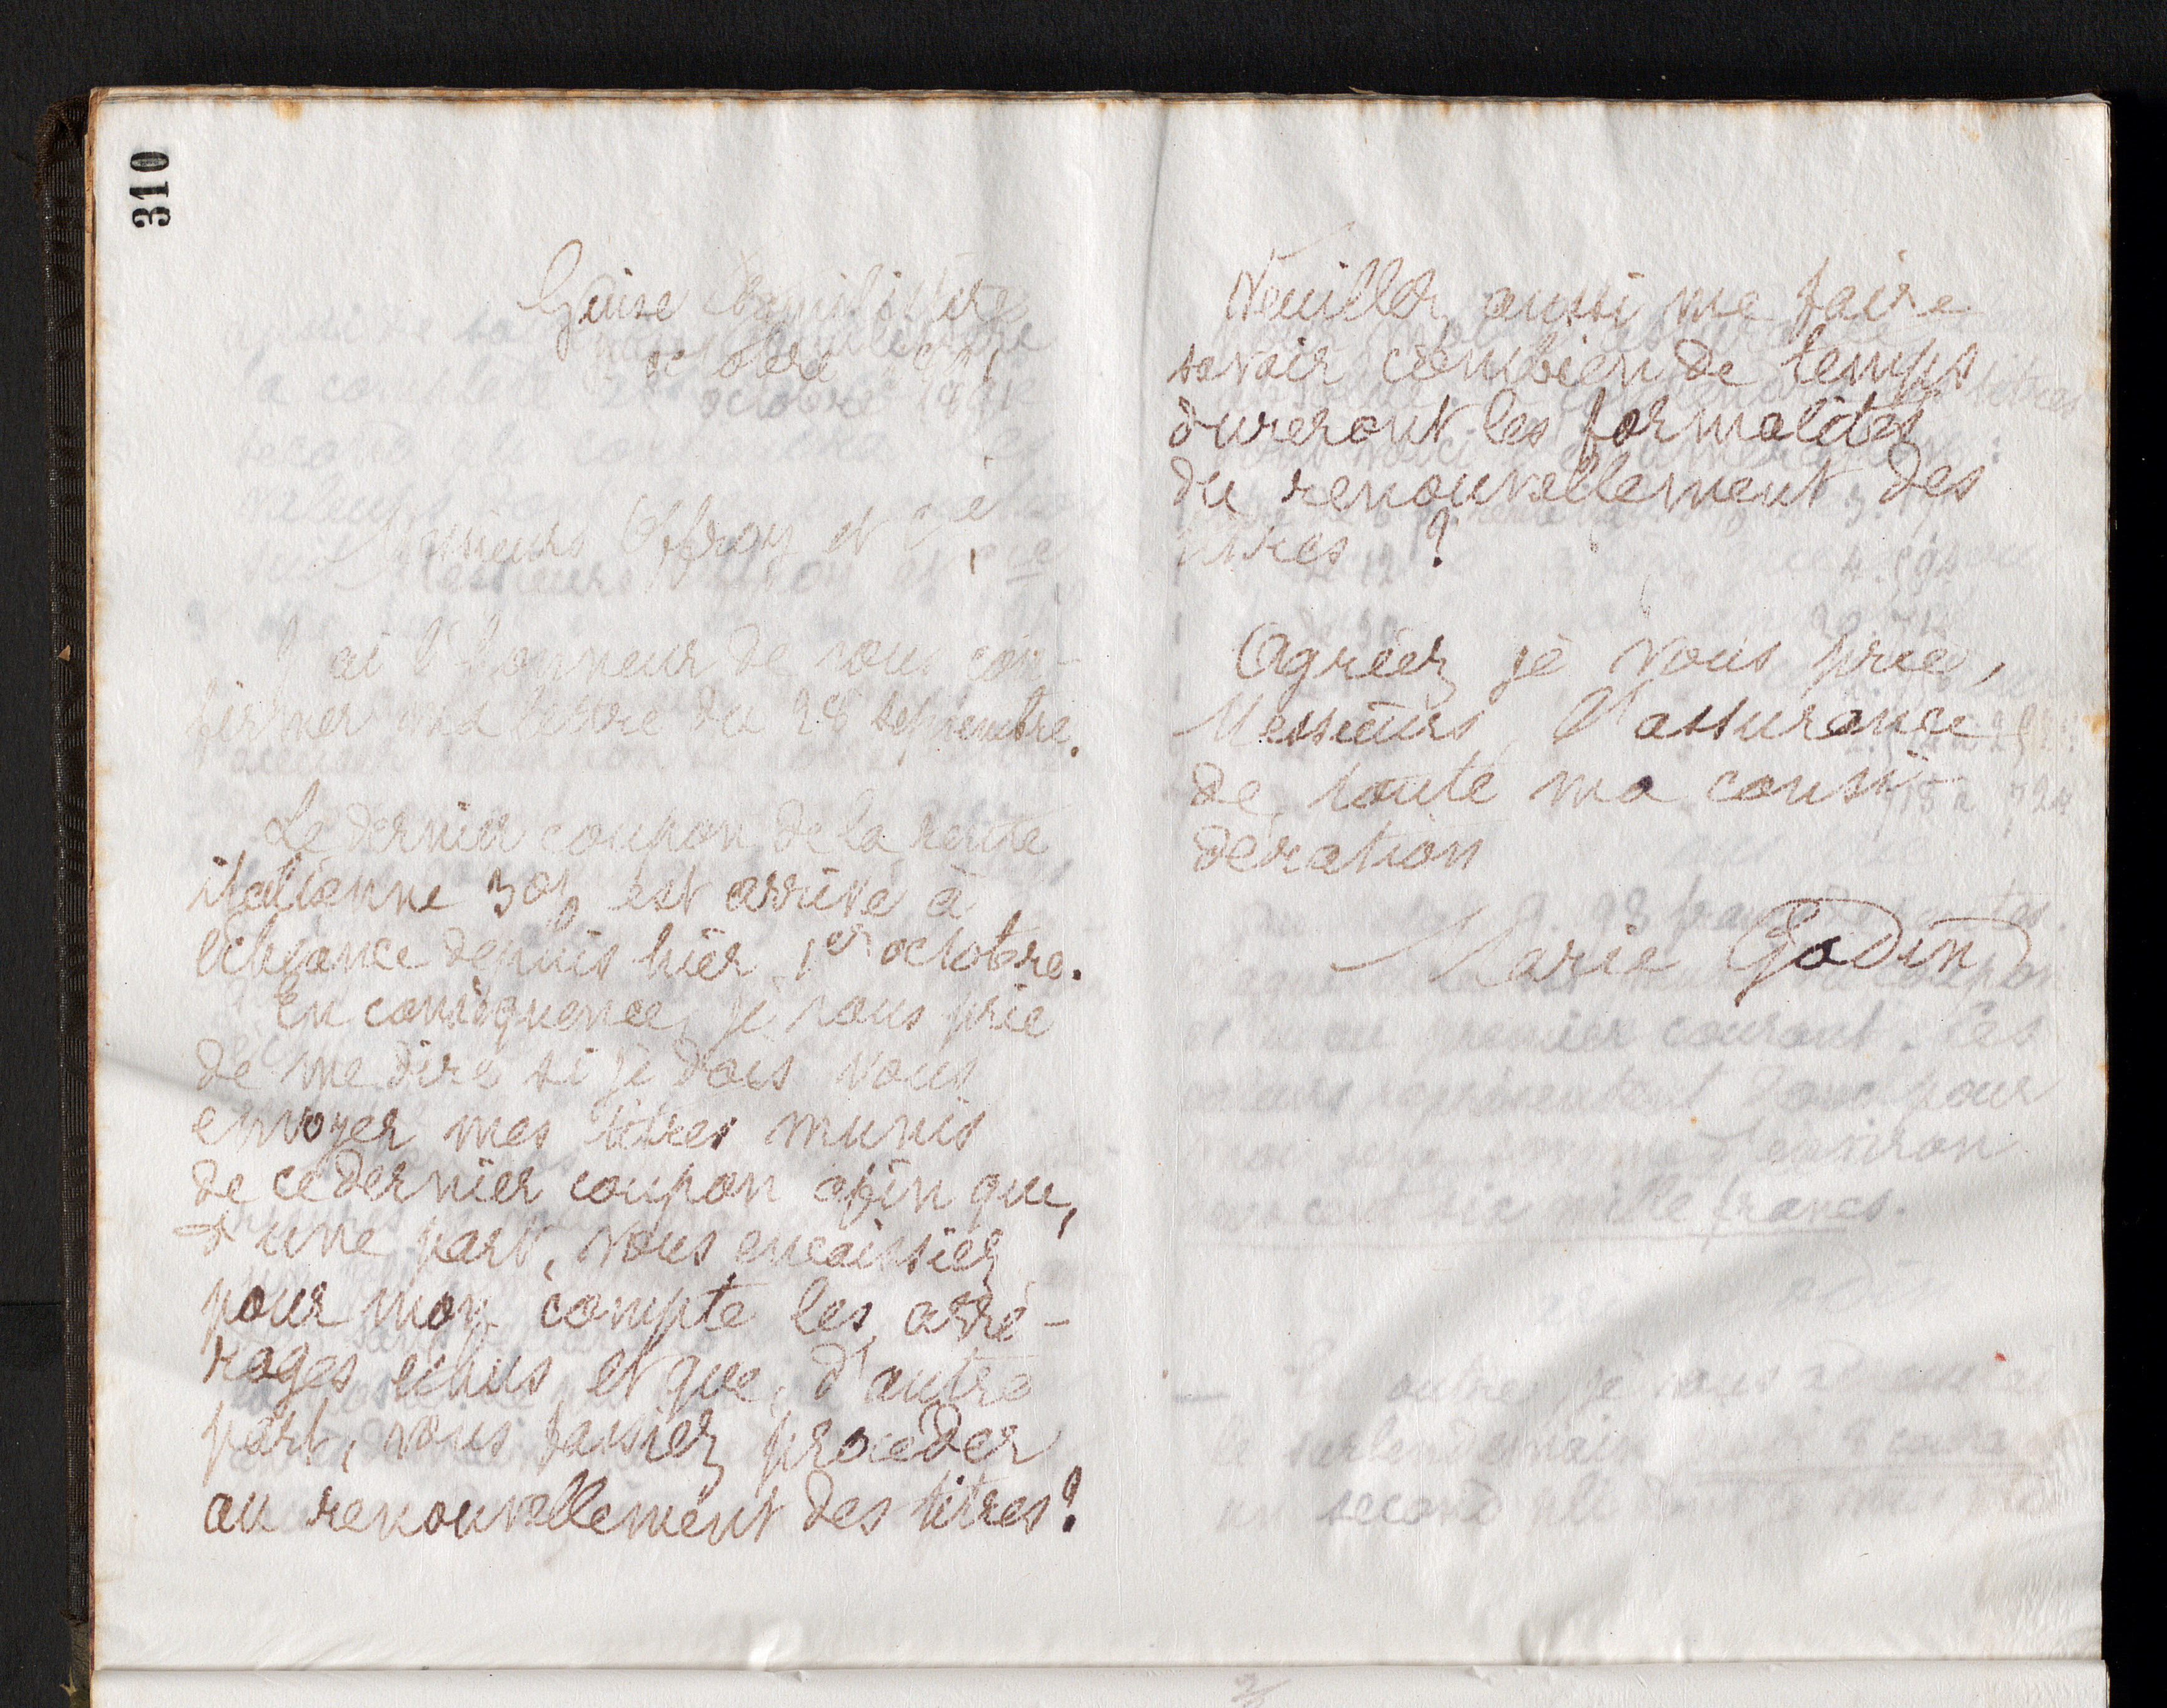 310
Guise Familistère
octobre 1891
Messieurs Offroy et Cie
J'ai l'honneur de vous con-
firmer ma lettre du 28 septembre.
Le dernier coupon de la rente
italienne 3% est arrivé à
échéance depuis hier 1er octobre.
En conséquence, je vous prie
de me dire si je dois vous
envoyer mes titres munis
de ce dernier coupon afin que,
d'une part, vous encaissiez
pour mon compte les arré-
rages échus et que, d'autre
part, vous fassiez procéder
au renouvellement des titres?
Veuillez aussi me faire
savoir combien de temps
dureront les formalités
du renouvellement des
titres?
Agréez je vous prie,
Messieurs, l'assurance
de toute ma consi-
dération
Marie Godin